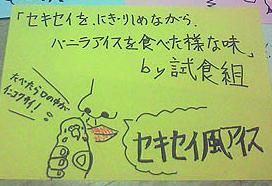 「セキセイを、にぎりしめながら、
バニラアイスを食べた様な味」
by試食組
たべたら口の中が
インコクサイ!
セキセイ風アイス